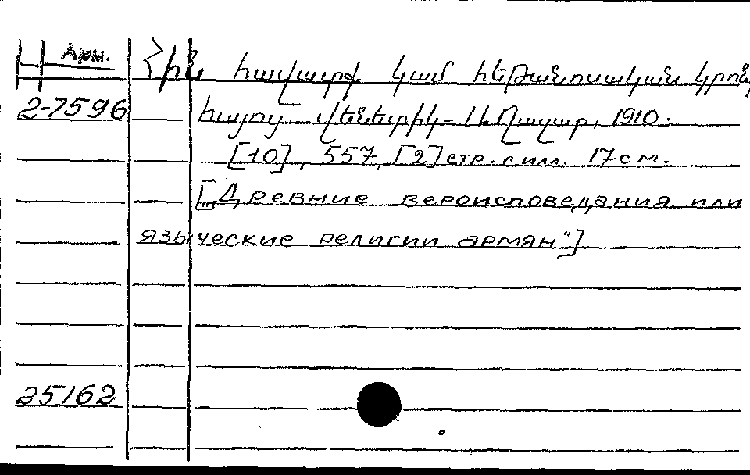 Арм.
Հին հաւատք կամ հեթանոսական կրօնք
2-7596 հայոց. Վենետիկ-Ս. Ղազար, 1910.
[10], 557, [2] стр. с илл. 17 см.
["Древние вероисповедания или
языческие религии армян"]
35162